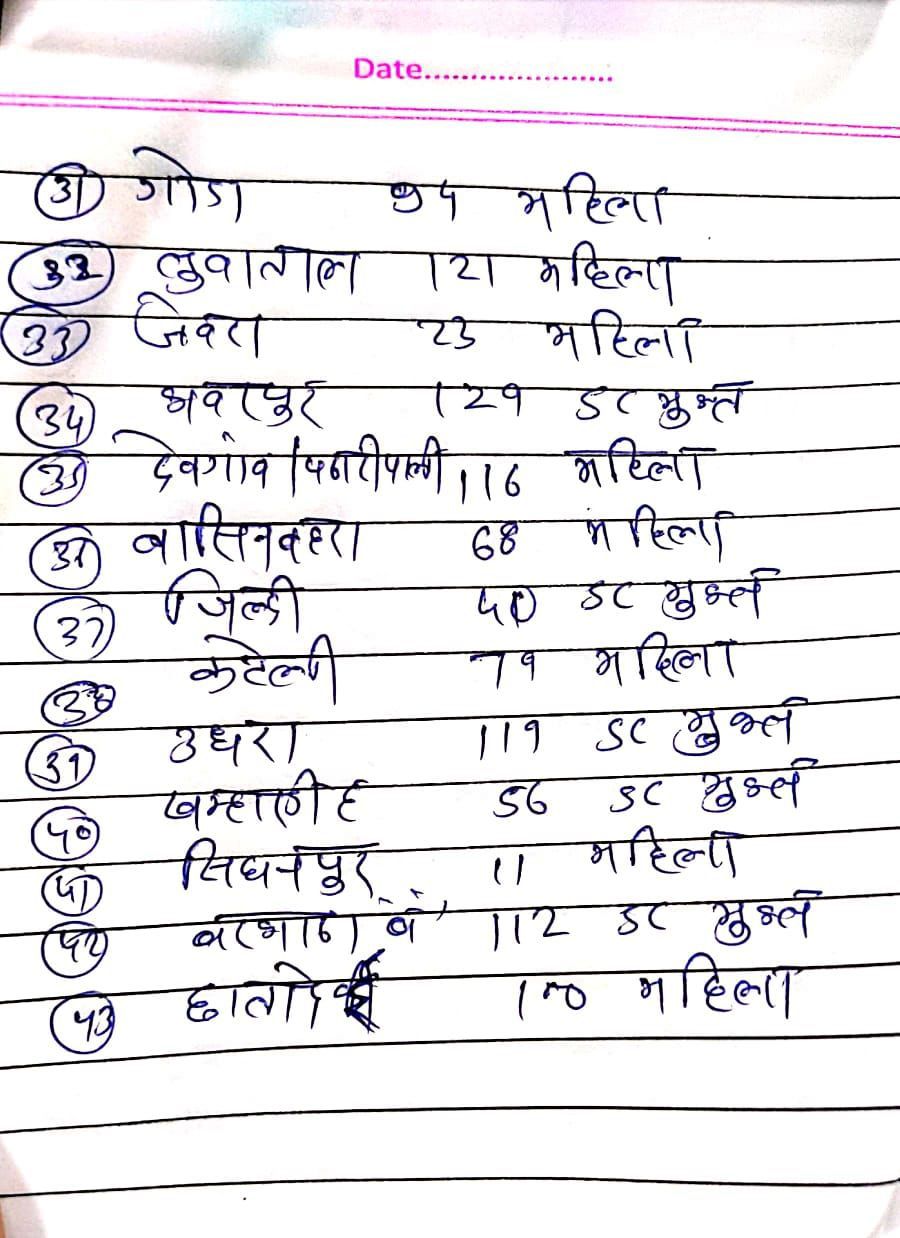 Date.....................
31 गोडा 94 महिला
32 लुवाताल 121 महिला
33 जेवरा 23 महिला
34 भवरपुर 129 SC मुक्त
35 देवगांव/पनरीपाली 116 महिला
36 बासिनबहरा 68 महिला
37 जिल्दी 40 SC मुक्त
38 कटेली 79 महिला
39 उधरा 119 SC मुक्त
40 खम्हारडीह 56 SC मुक्त
41 सिघनपुर 11 महिला
42 बरभाठा बें 112 SC मुक्त
43 छातादेई 170 महिला